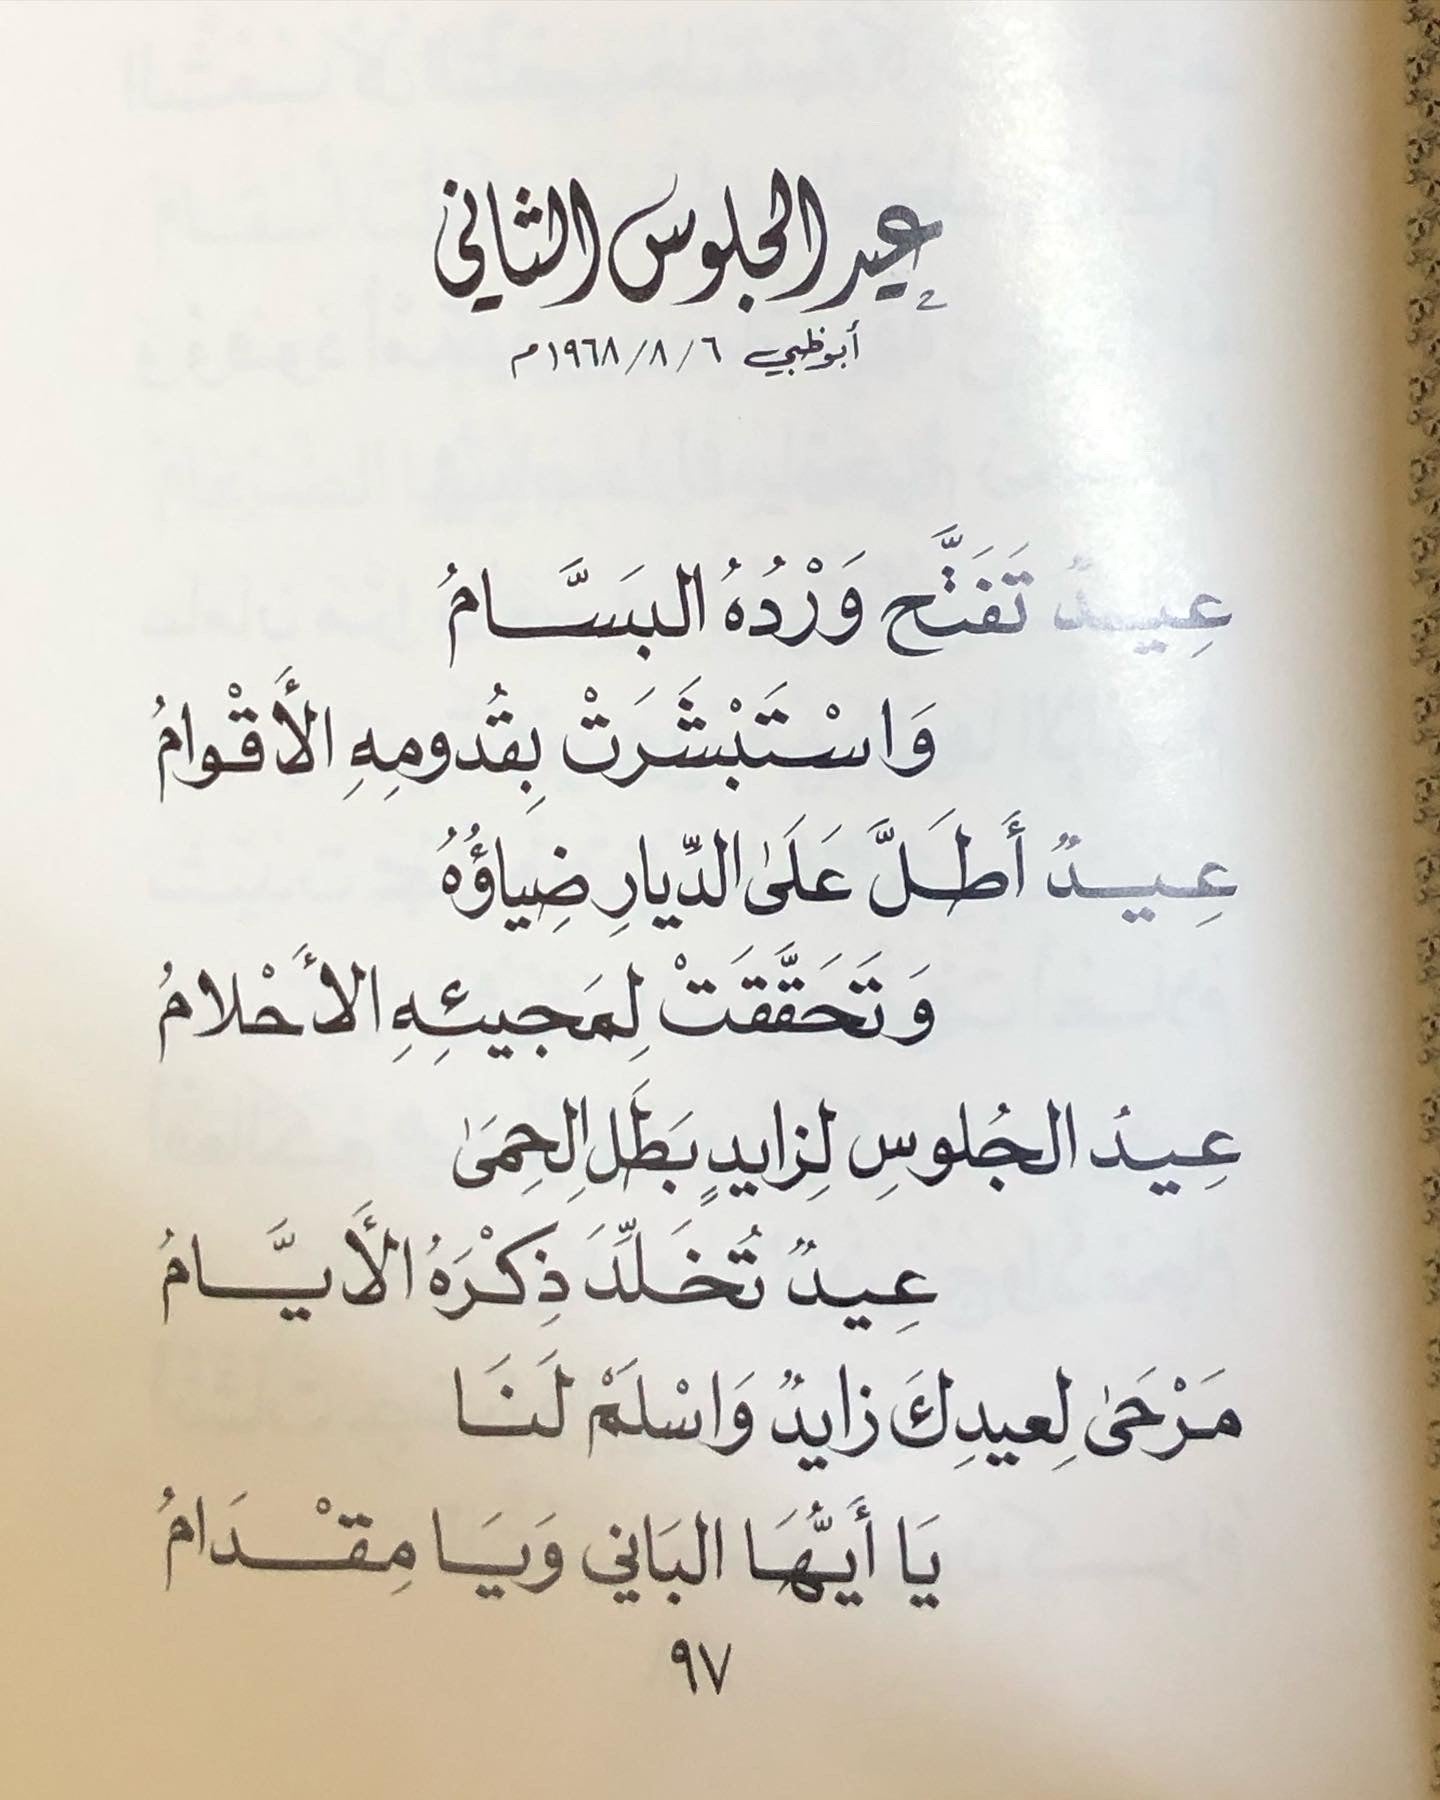 عيد الجلوس الثاني
أبوظبي ٦/٨/١٩٦٨م
عِيدٌ تَفَتَّح وَرْدُهُ البَسَّامُ
وَاسْتَبْشَرَتْ بِقُدومِهِ الأَقْوامُ
عِيدٌ أَطَلَّ عَلَىٰ الدِّيارِ ضِياؤُهُ
وَتَحَقَّقَتْ لِمَجيئِهِ الأَحْلامُ
عِيدُ الجُلوسِ لِزايدٍ بَطَلِ الحِمَىٰ
عِيدٌ تُخَلِّدَ ذِكْرَهُ الأَيَّامُ
مَرْحَىٰ لِعيدِكَ زايدٌ وَاسْلَمْ لَنَا
يَا أَيُّهَا البَاني وَيَا مِقْدَامُ
٩٧